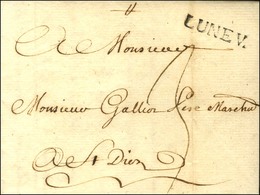 LUNEV.
A Monsieur
Monsieur Gallior Pere Marchand
A St Diez